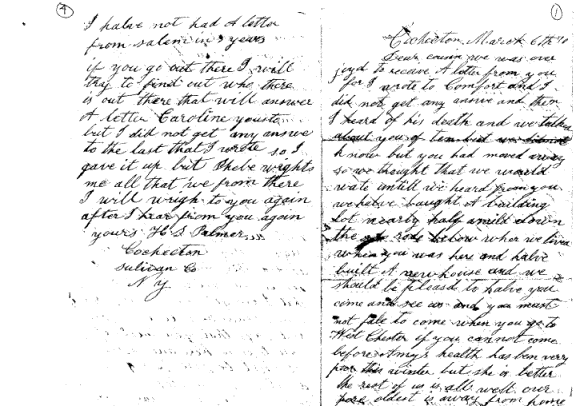 4
I halve not had A letter
from salem in 3 years
if you go out there I will
try to find out who there
is out there that will answer
A letter Caroline youste
but I did not get any ansve
to the last that I wrote so I
gave it up but Phebe wrights
me all that we from there
I will wrigh to you again
after I hear from you again
yours H Palmer
Cochecton
sulivan Co
N y
1
Cochecton March 6th
Dear cousin we was over
joyd to receve A letter from you
for I wrote to Comfort and I
did not get any ansve and then
I heard of his death and we talked
about you often but we did not
know but you had moved away
so we thought that we would
wate untill we heard from you
we halve baught A building
lot nearly half a mild down
the rode below wher we lived
when you was here and halve
built A new house and we
should be pleasd to halve you
come and see us and you must
not fale to come when you go to
West Chester if you cannot come
before Amys health has ben very
poor this winter but she is better
the rest of us is all well our
oldest is away from home